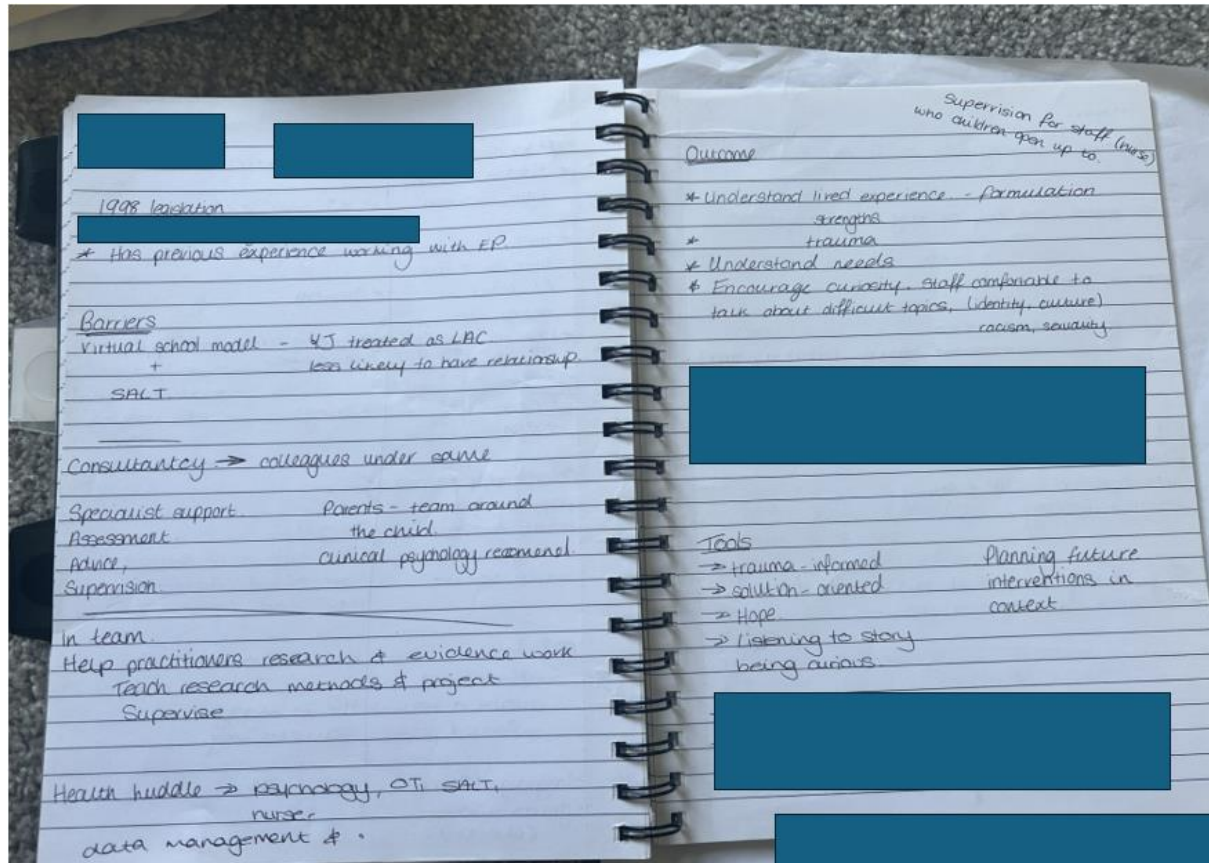 1998 legislation
* Has previous experience working with EP.
Barriers
Virtual school model - YJ treated as LAC
+ less likely to have relationship.
SALT
Consultancy → colleagues under same
Specialist support. Parents - team around
Assessment the child.
Advice, clinical psychology recomend.
Supervision
In team
Help practitioners research & evidence work
Teach research methods & project
Supervise
Health huddle → psychology, OT, SALT,
nurse,
data management & .
Supervision for staff (nurse)
who children open up to.
Outcome
* Understand lived experience - formulation
strengths
* trauma
* Understand needs
* Encourage curiosity, staff comfortable to
talk about difficult topics, (identity, culture)
racism, sexuality
Tools
→ trauma-informed Planning future
→ solution-oriented interventions in
→ Hope context
→ listening to story
being curious.